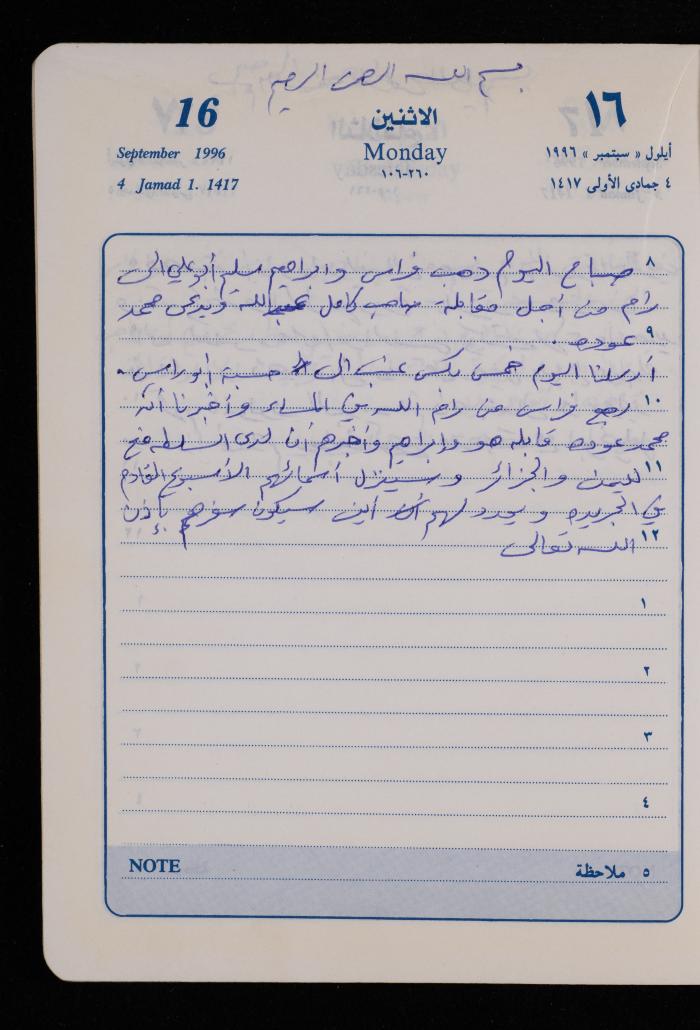 بسم الله الرحمن الرحيم
16 الاثنين ١٦
September 1996 Monday أيلول « سبتمبر » ١٩٩٦
4 Jamad 1. 1417 ٢٦٠-١٠٦ ٤ جمادى الأولى ١٤١٧
٨ صباح اليوم ذهب فراس وابراهيم سلم أبو علي الى
رام من أجل مقابلة صاحب كامل عبدالله ويدعى محمد
٩ عوده .
أرسلنا اليوم خمس بكس عنب الى حسبة أبو راس .
١٠ رجع فراس من رام الله في المساء وأخبرنا أنه
محمد عوده قابله هو وابراهيم وأخبرهم أن لدى السلطه منح
١١ لليمن والجزائر وسينزل أسمائهم الأسبوع القادم
في الجريده ويحدد لهم أين سيكون سفرهم بإذن
١٢ الله تعالى
١
٢
٣
٤
NOTE ٥ ملاحظة